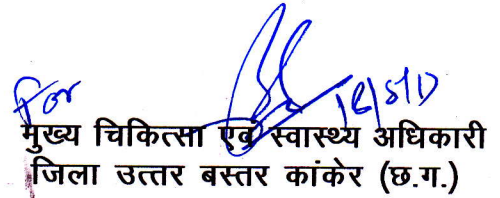 For
मुख्य चिकित्सा एवं स्वास्थ्य अधिकारी
जिला उत्तर बस्तर कांकेर (छ.ग.)